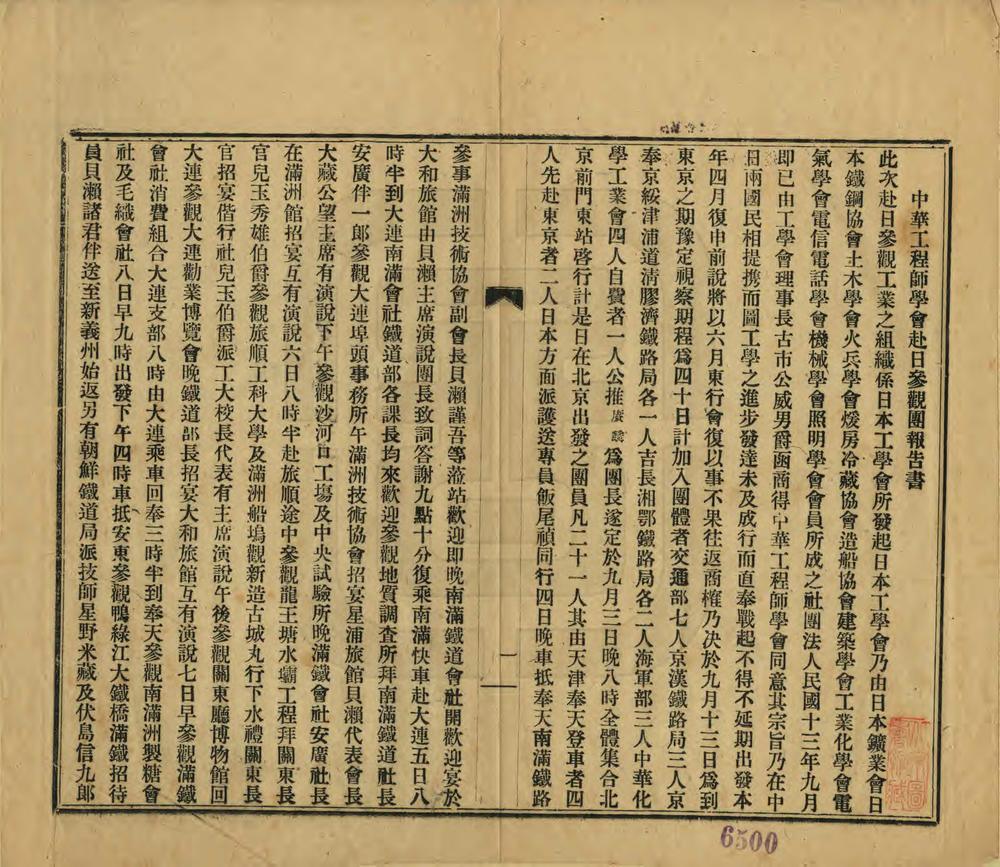 中華工程師學會赴日參觀團報告書
此次赴日參觀工業之組織係日本工學會所發起日本工學會乃由日本鑛業會日
本鐵鋼協會土木學會火兵學會煖房冷藏協會造船協會建築學會工業化學會電
氣學會電信電話學會機械學會照明學會會員所成之社團法人民國十三年九月
即已由工學會理事長古市公威男爵函商得中華工程師學會同意其宗旨乃在中
日兩國民相提携而圖工學之進步發達未及成行而直奉戰起不得不延期出發本
年四月復申前說將以六月東行會復以事不果往返商榷乃决於九月十三日爲到
東京之期豫定視察期程爲四十日計加入團體者交通部七人京漢鐵路局三人京
奉京綏津浦道淸膠濟鐵路局各一人吉長湘鄂鐵路局各二人海軍部三人中華化
學工業會四人自費者一人公推爲團長遂定於九月三日晚八時全體集合北
京前門東站啓行計是日在北京出發之團員凡二十一人其由天津奉天登車者四
人先赴東京者二人日本方面派護送專員飯尾禎同行四日晚車抵奉天南滿鐵路
一
參事滿洲技術協會副會長貝瀨謹吾等蒞站歡迎即晚南滿鐵道會社開歡迎宴於
大和旅館由貝瀨主席演說團長致詞答謝九點十分復乘南滿快車赴大連五日八
時半到大連南滿會社鐵道部各課長均來歡迎參觀地質調查所拜南滿鐵道社長
安廣伴一郎參觀大連埠頭事務所午滿洲技術協會招宴星浦旅館貝瀨代表會長
大藏公望主席有演說下午參觀沙河口工塲及中央試驗所晚滿鐵會社安廣社長
在滿洲館招宴互有演說六日八時半赴旅順途中參觀龍王塘水壩工程拜關東長
官兒玉秀雄伯爵參觀旅順工科大學及滿洲船塢觀新造古城丸行下水禮關東長
官招宴偕行社兒玉伯爵派工大校長代表有主席演說午後參觀關東廳博物館回
大連參觀大連勸業博覽會晚鐵道部長招宴大和旅館互有演說七日早參觀滿鐵
會社消費組合大連支部八時由大連乘車回奉三時半到奉天參觀南滿洲製糖會
社及毛織會社八日早九時出發下午四時車抵安東參觀鴨綠江大鐵橋滿鐵招待
員貝瀨諸君伴送至新義州始返另有朝鮮鐵道局派技師星野米藏及伏島信九郎
6500